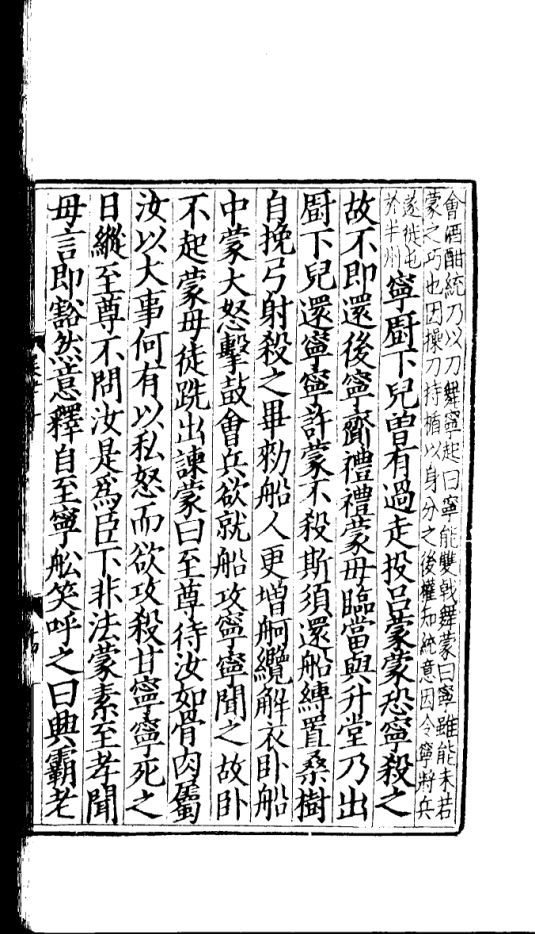 會酒酣統乃以刀舞寧起曰寧能雙戟舞蒙曰寧雖能未若
蒙之巧也因操刀持楯以身分之後權知統意因令寧將兵
遂徙屯
於半州
寧廚下兒曾有過走投呂蒙蒙恐寧殺之
故不即還後寧齎禮禮蒙母臨當與升堂乃出
廚下兒還寧寧許蒙不殺斯須還船縛置桑樹
自挽弓射殺之畢勑船人更增舸纜解衣卧船
中蒙大怒擊鼓會兵欲就船攻寧寧聞之故卧
不起蒙母徒跣出諫蒙曰至尊待汝如骨肉屬
汝以大事何有以私怒而欲攻殺甘寧寧死之
日縱至尊不問汝是爲臣下非法蒙素至孝聞
母言即豁然意釋自至寧舩笑呼之曰興霸老